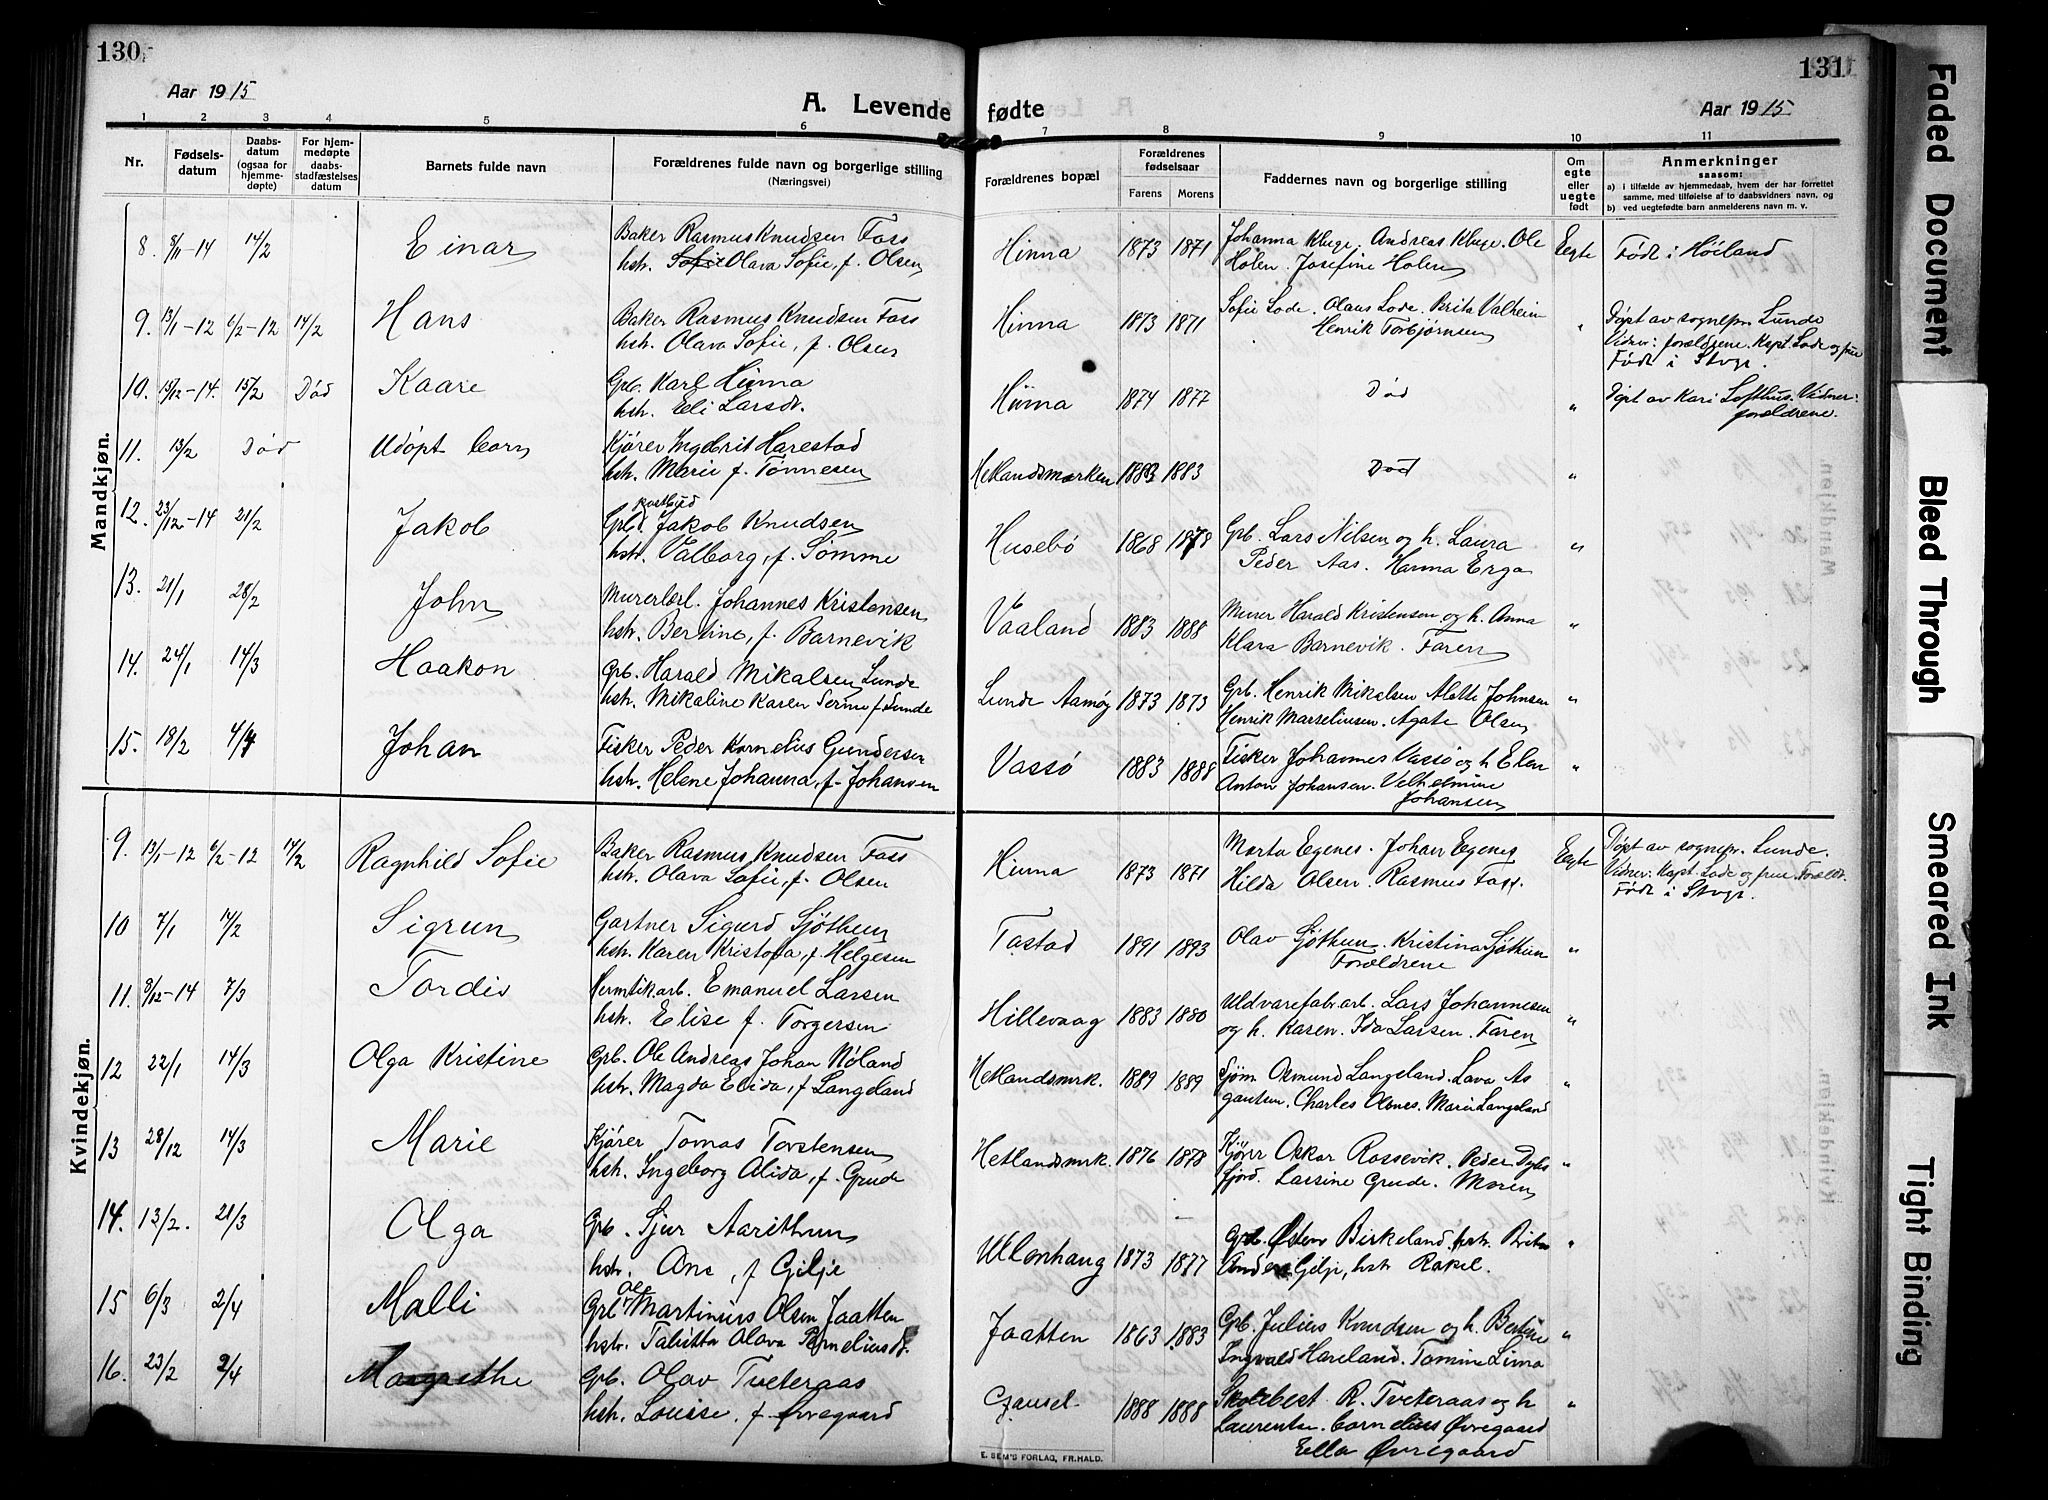 130
Aar 1915
A. Levende
1 2 3 4 5 6
Nr.
Fødsels-
datum
Daabs-
datum
(ogsaa for
hjemme-
døpte)
For hjem-
medøpte
daabs-
stadfæstelses
datum
Barnets fulde navn
Forældrenes fulde navn og borgerlige stilling
(Næringsvei)
Mandkjøn.
8. 8/11-14 14/2 Einar Baker Rasmus Knudsen Foss
hstr. Sofie Olava Sofie, f. Olsen
9. 13/1-12 6/2-12 14/2 Hans Baker Rasmus Knudsen Foss
hstr. Olava Sofie, f. Olsen
10. 15/12-14. 15/2 Død Kaare Gpb. Karl Hinna
hstr. Eli Larsdt.
11. 13/2 Død Udøpt barn Kjører Ingebrit Harestad
hstr. Marie f. Tønnesen
12. 23/12-14 21/2 Jakob Gpb. postbud Jakob Knudsen
hstr. Valborg, f. Sømme
13. 21/1 28/2 John Murerlærl. Johannes Kristensen
hstr. Bertine, f. Barnevik
14. 24/1 14/3 Haakon Gpb. Harald Mikalsen Lunde
hstr. Mikaline Karen Serine f Lunde
15. 18/2 4/4 Johan Fisker Peder Kornelius Gundersen
hstr. Helene Johanna, f. Johansen
Kvindekjøn.
9. 13/1-12 6/2-12 14/2 Ragnhild Sofie Baker Rasmus Knudsen Foss
hstr. Olava Sofie, f. Olsen
10 7/1 14/2 Sigrun Gartner Sigurd Sjøthun
hstr. Karen Kristofa, f. Helgesen
11. 8/12-14 7/3 Tordis Hermtikarb. Emanuel Larsen
hstr. Elise f. Torgersen
12 22/1 14/3 Olga Kristine Gpb. Ole Andreas Johan Nøland
hstr. Magda Elida, f Langeland
13 28/12 14/3 Marie Kjører Tomas Torstensen
hstr. Ingeborg Alida, f. Grude
14. 13/2. 21/3 Olga Gpb. Sjur Aarithun
hstr. Ane, f Gilje
15 6/3 2/4 Malli Gpb Ole Martinius Olsen Jaatten
hstr. Tabitta Olava
16. 23/2 2/4 Margrethe Gpb. Olav Tveteraas
hstr. Lousse. f. Øvregaard
131
fødte
Aar 1915
7 8 9 10 11
Forældrenes bopæl
Forældrenes
fødselsaar
Farens Morens
Faddernes navn og borgerlige stilling
Om
egte
eller
uegte
født
Anmerkninger
saasom:
a) i tilfælde av hjemmedaab, hvem der har forrettet
samme, med tilføielse af to daabsvidners navn, og
b) ved uegtefødte barn anmelderens navn m. v.
Hinna 1873 1871 Johanna Kluge. Andreas Kluge. Ole
Holen. Josefine Holen Eegte Født i Høiland
Hinna 1873 1871 Sofie Lode. Olaus Lode. Brita Valheim
Henrik Torbjørnsen " Døpt av sognepr. Lunde
Vidner: forældrene. Kapt. Lode og frue
Født i Stvgr.
Hinna 1874 1877 Død " Døpt av Kari Lofthus. Vidner:
forældrene.
Hetlandsmarken 1883 Død "
Husebø 1868 1878 Gpb. Lars Nilsen og h. Laura
Peder Aas. Hanna Erga "
Vaaland 1883 1888 Murer Harald Kristensen og h. Anna
Klara Barnevik. Faren "
Lunde Aamøy 1873 1873 Gpb. Henrik Mikalsen Alette Johnsen
Henrik Marseliusen. Agate Olsen "
Vassø 1883 1888 Fisker Johannes Vassø og h Elen
Anton Johansen. Velhelmine
Johansen "
Hinna 1873 1871 Marta Egenes. Johan Egenes
Hilda Olsen. Rasmus Foss. Eegte Døpt av sognepr. Lunde.
Vidner: Kapt. Lode og frue. Foreldr.
Født i Stvgr.
Tastad 1891 1893 Olav Sjøthun. Kristina Sjøthun
Forældrene "
Hillevaag 1883 1880 Uldvarefabr.arb. Lars Johannesen
og h. Karen. Ida Larsen. Faren "
Hetlandsmrk. 1889 1889 Sjøm. Osmund Langeland. Lava As
gautsen. Charles Olsnes. Marie Langeland "
Hetlandsmrk. 1876 1878 Kjører Oskar Rossevik. Peder Dybs
fjord. Larsine Grude. Moren "
Ullenhaug 1873 1877 Gpb. Østen Birkeland, hstr. Brita
Anders Gilje, hstr Rakel. "
Jaatten 1863 1883 Gpb. Julius Knudsen og h. Bertine
Ingvald Hareland. Tomine Lima "
Gausel 1888 1888 Skolebest R. Tveteraas og h
Laurentse. Cornelius Øvregaard
Ella Øvregaard "
E. SEM'S FORLAG, FR.HALD.
Faded Document
Bleed Through
Smeared Ink
Tight Binding